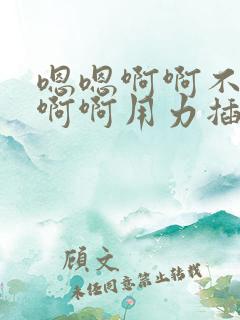 嗯嗯啊啊不
啊啊用力插
顾文
未经同意禁止转载